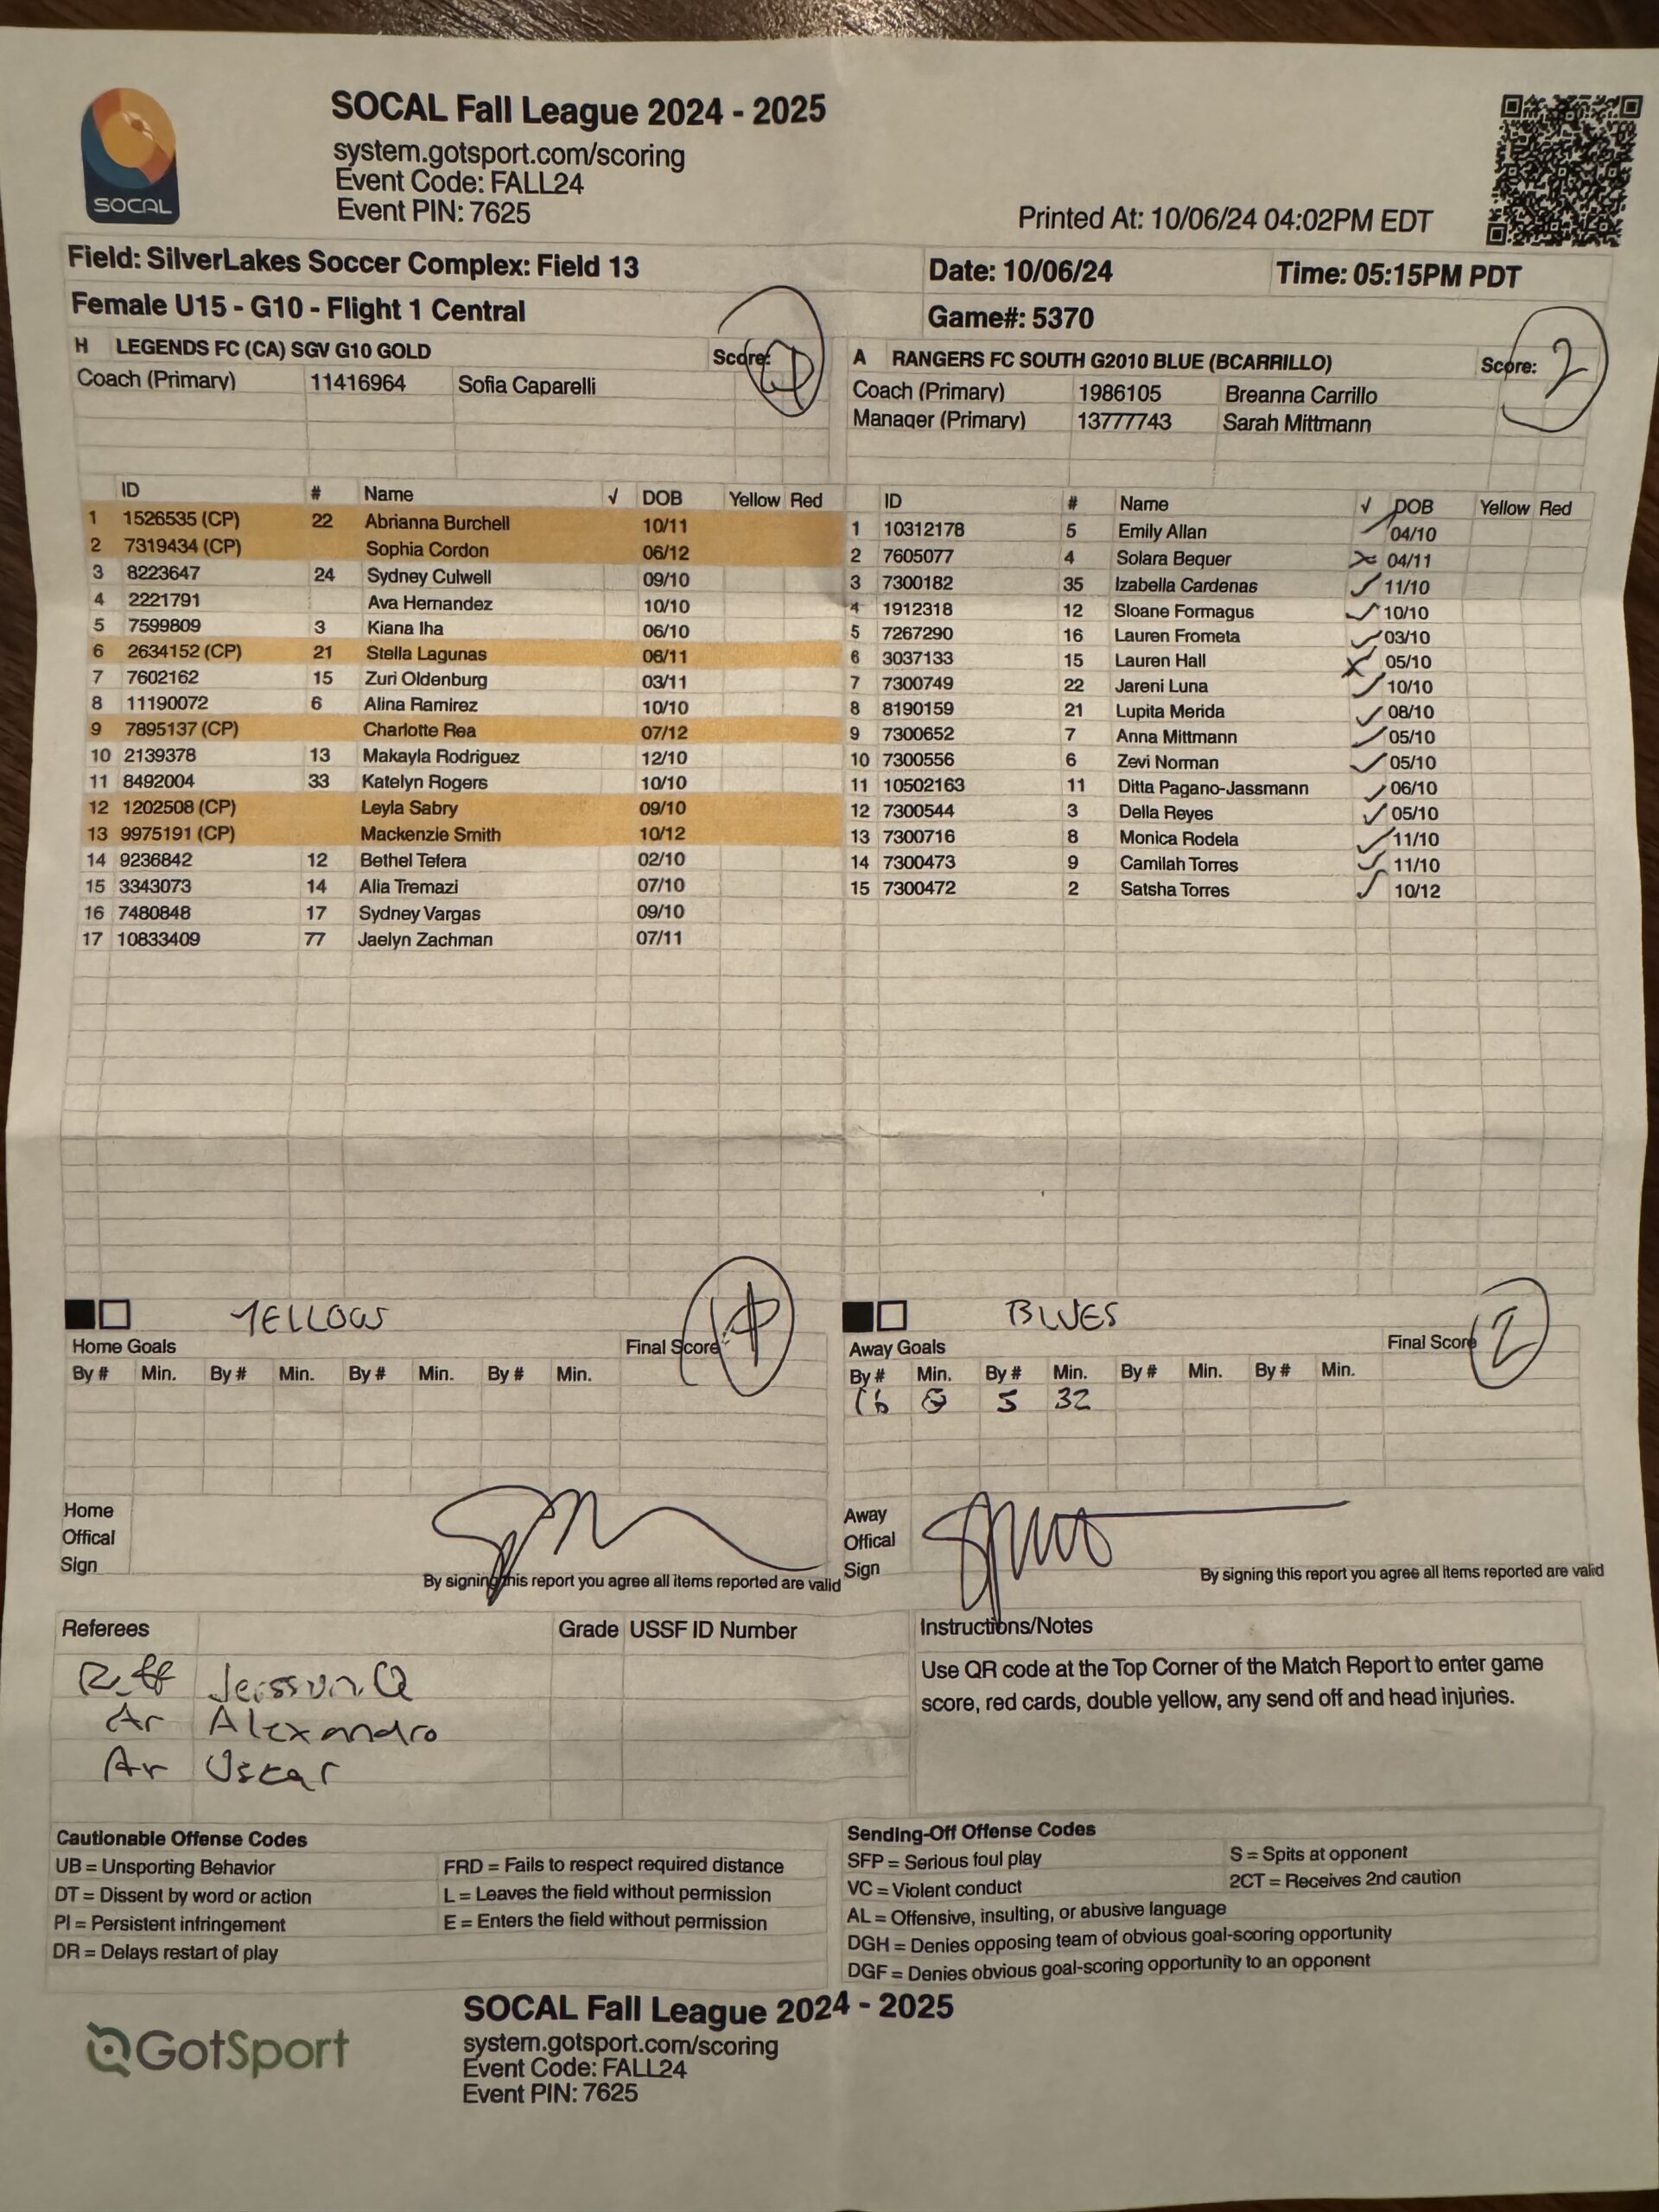 SOCAL Fall League 2024 - 2025
system.gotsport.com/scoring
Event Code: FALL24
Event PIN: 7625
SOCAL
Printed At: 10/06/24 04:02PM EDT
Field: SilverLakes Soccer Complex: Field 13 Date: 10/06/24 Time: 05:15PM PDT
Female U15 - G10 - Flight 1 Central Game#: 5370
H LEGENDS FC (CA) SGV G10 GOLD Score:
Coach (Primary) 11416964 Sofia Caparelli
A RANGERS FC SOUTH G2010 BLUE (BCARRILLO) Score: 2
Coach (Primary) 1986105 Breanna Carrillo
Manager (Primary) 13777743 Sarah Mittmann
ID # Name √ DOB Yellow Red
1 1526535 (CP) 22 Abrianna Burchell 10/11
2 7319434 (CP) Sophia Cordon 06/12
3 8223647 24 Sydney Culwell 09/10
4 2221791 Ava Hernandez 10/10
5 7599809 3 Kiana Iha 06/10
6 2634152 (CP) 21 Stella Lagunas 06/11
7 7602162 15 Zuri Oldenburg 03/11
8 11190072 6 Alina Ramirez 10/10
9 7895137 (CP) Charlotte Rea 07/12
10 2139378 13 Makayla Rodriguez 12/10
11 8492004 33 Katelyn Rogers 10/10
12 1202508 (CP) Leyla Sabry 09/10
13 9975191 (CP) Mackenzie Smith 10/12
14 9236842 12 Bethel Tefera 02/10
15 3343073 14 Alia Tremazi 07/10
16 7480848 17 Sydney Vargas 09/10
17 10833409 77 Jaelyn Zachman 07/11
ID # Name √ DOB Yellow Red
1 10312178 5 Emily Allan 04/10
2 7605077 4 Solara Bequer 04/11
3 7300182 35 Izabella Cardenas ✓ 11/10
4 1912318 12 Sloane Formagus ✓ 10/10
5 7267290 16 Lauren Frometa ✓ 03/10
6 3037133 15 Lauren Hall X 05/10
7 7300749 22 Jareni Luna ✓ 10/10
8 8190159 21 Lupita Merida ✓ 08/10
9 7300652 7 Anna Mittmann ✓ 05/10
10 7300556 6 Zevi Norman ✓ 05/10
11 10502163 11 Ditta Pagano-Jassmann ✓ 06/10
12 7300544 3 Della Reyes ✓ 05/10
13 7300716 8 Monica Rodela ✓ 11/10
14 7300473 9 Camilah Torres ✓ 11/10
15 7300472 2 Satsha Torres ✓ 10/12
YELLOW
Home Goals Final Score
By # Min. By # Min. By # Min. By # Min.
BLUES
Away Goals Final Score 2
By # Min. By # Min. By # Min. By # Min.
16 5 32
Home
Offical
Sign
By signing this report you agree all items reported are valid
Away
Offical
Sign
By signing this report you agree all items reported are valid
Referees Grade USSF ID Number
Ar Alexandro
Ar Oscar
Instructions/Notes
Use QR code at the Top Corner of the Match Report to enter game
score, red cards, double yellow, any send off and head injuries.
Cautionable Offense Codes
UB = Unsporting Behavior FRD = Fails to respect required distance
DT = Dissent by word or action L = Leaves the field without permission
PI = Persistent infringement E = Enters the field without permission
DR = Delays restart of play
Sending-Off Offense Codes
SFP = Serious foul play S = Spits at opponent
VC = Violent conduct 2CT = Receives 2nd caution
AL = Offensive, insulting, or abusive language
DGH = Denies opposing team of obvious goal-scoring opportunity
DGF = Denies obvious goal-scoring opportunity to an opponent
GotSport
SOCAL Fall League 2024 - 2025
system.gotsport.com/scoring
Event Code: FALL24
Event PIN: 7625